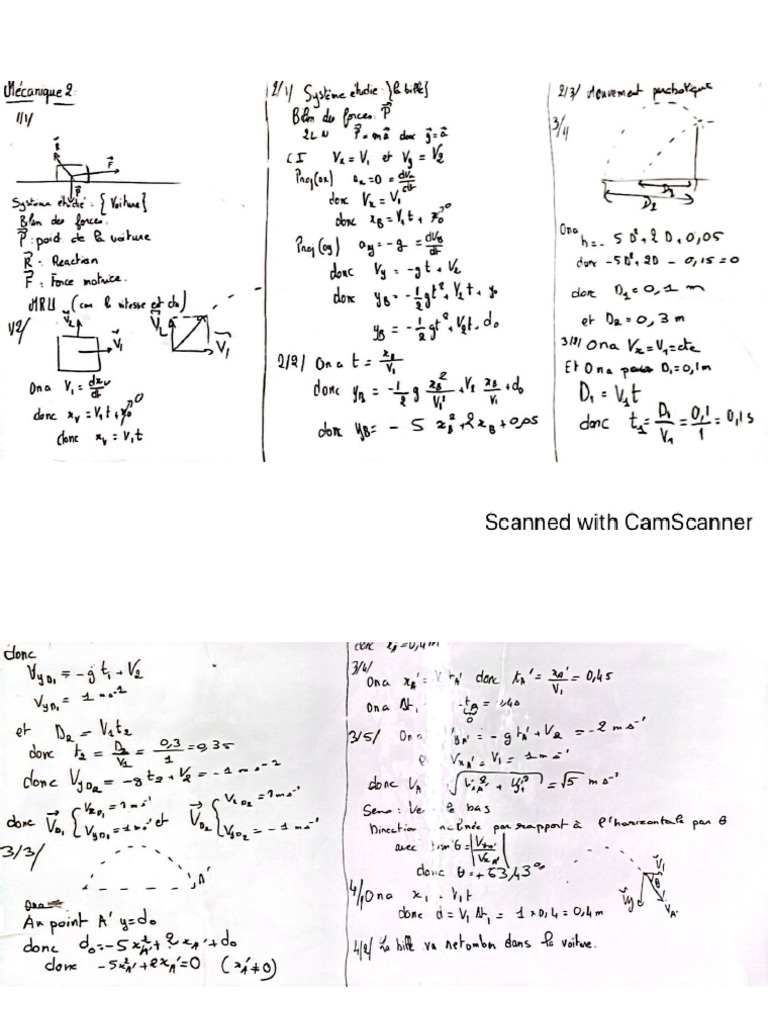 Mécanique 2:
1/1/
R
F
P
Système étudié : {Voiture}
Bilan des forces.
P : poid de la voiture
R : Reaction
F : Force motrice.
MRU (car la vitesse est cte)
1/2/
V2
V1
V2
V1
On a V1 = dxv/dt
donc xv = V1t + x0
0
donc xv = V1t
2/1/ Système étudié : {la bille}
Bilan des forces. P
2L N P = ma donc g = a
CI Vx = V1 et Vy = V2
Proj(ox) ax = 0 = dVx/dt
donc Vx = V1
donc xB = V1t + x0
0
Proj(oy) ay = -g = dVy/dt
donc Vy = -gt + V2
donc yB = -1/2 gt² + V2t + y0
yB = -1/2 gt² + V2t + d0
2/2/ On a t = xB/V1
donc yB = -1/2 g xB²/V1² + V2 xB/V1 + d0
donc yB = - 5 xB² + 2xB + 0,05
2/3/ Mouvement parabolique
3/1/
D1
D2
On a
h = - 5 D² + 2 D + 0,05
donc -5D² + 2D - 0,15 = 0
donc D1 = 0,1 m
et D2 = 0,3 m
3/2/ On a Vx = V1 = cte
Et On a pour D1 = 0,1m
D1 = V1t
donc t1 = D1/V1 = 0,1/1 = 0,1s
Scanned with CamScanner
donc
VyD1 = -g t1 + V2
VyD1 = 1 ms-2
et D2 = V1t2
donc t2 = D2/V1 = 0,3/1 = 0,3s
donc VyD2 = -g t2 + V2 = -1 ms-2
donc VD1 { VxD1 = 1 ms-1 VyD1 = 1 ms-1 et VD2 { VxD2 = 1 ms-1 VyD2 = -1 ms-1
3/3/
A'
On a
Au point A' y = d0
donc d0 = -5x²A' + 2xA' + d0
donc -5x²A' + 2xA' = 0 (xA' ≠ 0)
3/4/
On a xA' = tA' donc tA' = xA'/V1 = 0,4s
On a Δt1
0
3/5/ On a = -g tA' + V2 = -2 ms-1
VxA' = V1 = 1 ms-1
donc VA = √ = √5 ms-1
Sens : Ve le bas
Direction inclinée par rapport à l'horizontale par θ
avec θ = |VyA'/VxA'|
donc θ = +63,43°
V1
θ
Vy
VA'
4/1/ On a x1 V1t
donc d = V1 Δt1 = 1 × 0,4 = 0,4m
4/2/ La bille va retomber dans la voiture.